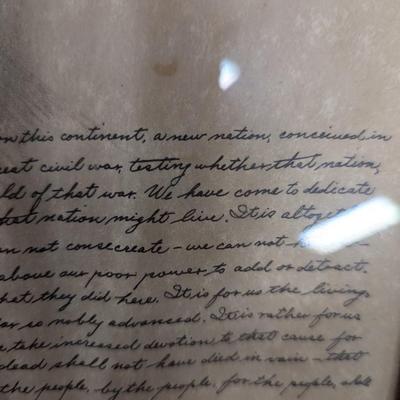 on this continent, a new nation, conceived in
great civil war, testing whether that nation,
ld of that war. We have come to dedicate
that nation might live. It is altoget
an not consecreate – we can not h
above our poor power to add or detract.
hat they did here. It is for us the living
far so nobly advanced. It is rather for us
e take increased devotion to that cause for
dead shall not have died in vain – that
the people, by the people, for the people, shall